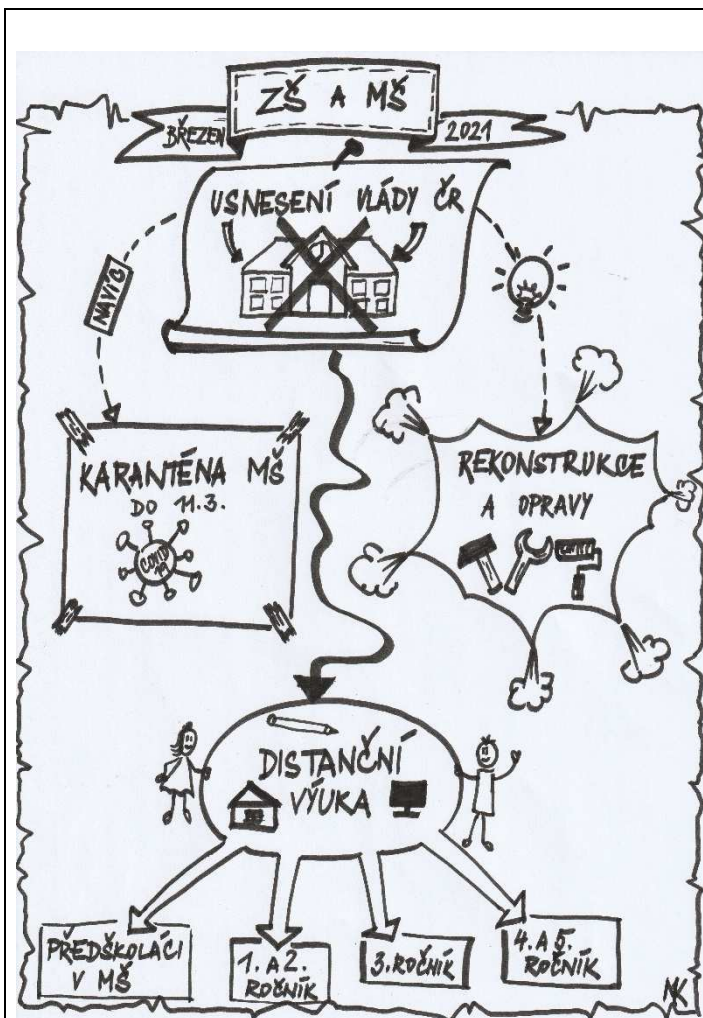 ZŠ A MŠ
BŘEZEN 2021
USNESENÍ VLÁDY ČR
NAVÍC
KARANTÉNA MŠ
DO 11.3.
COVID
19
REKONSTRUKCE
A OPRAVY
DISTANČNÍ
VÝUKA
PŘEDŠKOLÁCI
V MŠ
1. A 2.
ROČNÍK
3. ROČNÍK
4. A 5.
ROČNÍK